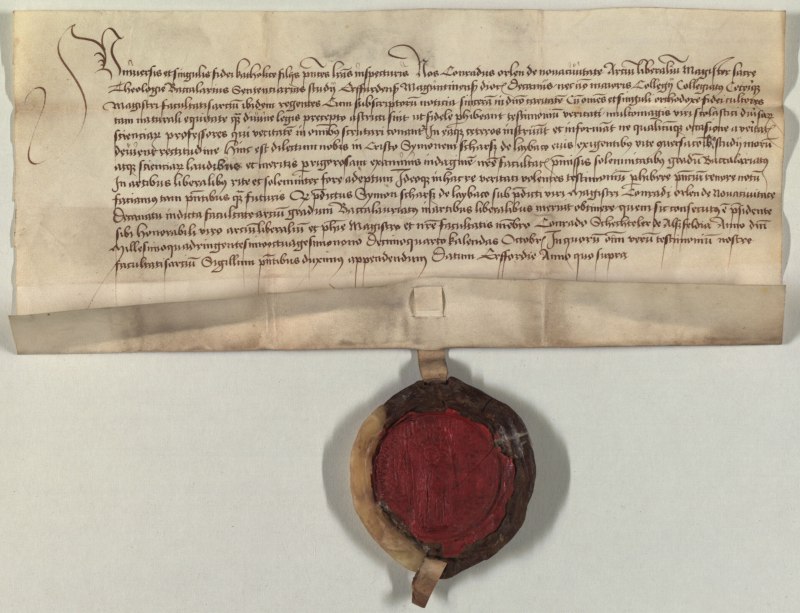 Universis et singulis fidei katholice filijs pñtes lras inspecturis Nos Conradus orlen de nonacivitate Arciũ liberaliũ Magister sacre
Theologie Baccalarius Sentenciarius studij Erffurdensis Maguntinensis dioc̃ Decanus necnõ maioris Collegij Collegiati Ceteriq̃
Magistri facultatis arciũ ibidem regentes Cum subscriptorũ noticia sincerã in dño caritatẽ Cũ omẽs et singuli orthodoxe fidei cultores
tam naturali equitate q̃ divine legis precepto astricti sint ut fidele phibeant testimoniũ veritati multomagis viri scolastici
scienciar professores qui veritatẽ in omĩbo scrutari et informãt ne qualicũq̃ occasione a veritatis
rectitudine Hinc est dilectum nobis in Cristo Symonem scharff de laybaco eius exigentibo vite studij morũ
atq̃ scienciar laudibus et meritis prigorosam examinis indaginẽ facultatis solemnitatibo gradũ Baccalariatus
In artibus liberalibo rite et solemniter fore adeptum Idcoq̃ in hac re veritati volentes testimoniũ phibere tenore notũ
facimus tam pñtibus q̃ futuris Q pdictus Symon scharff de laybaco sub pdicti viri Magistri Conradi orlen de Nonacivitate
Decanatu indicta facultate arciũ gradum Baccalariatus in artibus liberalibus meruit obtinere quem sic consecutus ẽ psidente
sibi honorabili viro arciũ liberaliũ et phie Magistro et nre facultatis mẽbro Conrado Schecheler de Alsfeldia Anno dñi
Millesimoquadringentesimooctuagesimonono Decimoquarto kalendas Octobr In quorũ oĩm verũ testimoniũ nostre
facultatis arciũ Sigillum pñtibus duximus appendendum Datum Erffordie Anno quo supra